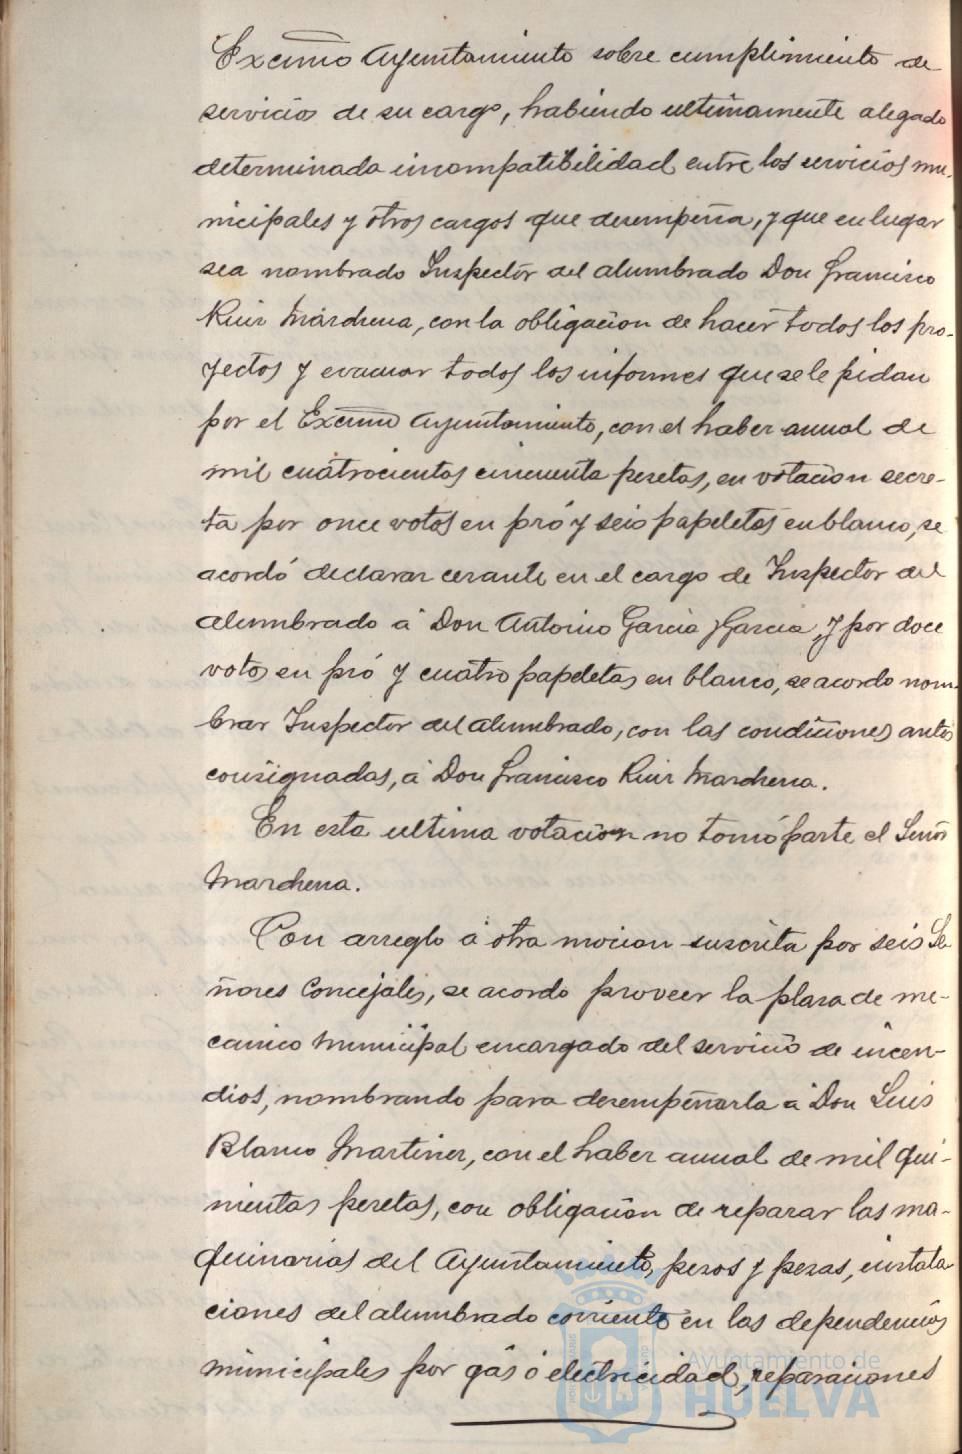 Excmo Ayuntamiento sobre cumplimiento de
servicios de su cargo, habiendo ultimamente alegado
determinada incompatibilidad entre los servicios mu-
nicipales y otros cargos que desempeña, y que en lugar
sea nombrado Inspector del alumbrado Don Francisco
Ruiz Marchena, con la obligacion de hacer todos los pro-
yectos y evacuar todos los informes que se le pidan
por el Excmo Ayuntamiento, con el haber anual de
mil cuatrocientas cincuenta pesetas, en votacion secre-
ta por once votos en pró y seis papeletas en blanco, se
acordó declarar cesante en el cargo de Inspector del
alumbrado á Don Antonio Garcia y Garcia, y por doce
votos en pró y cuatro papeletas en blanco, se acordo nom-
brar Inspector del alumbrado, con las condiciones antes
consignadas, á Don Francisco Ruiz Marchena.
En esta ultima votacion no tomó parte el Señor
Marchena.
Con arreglo á otra mocion suscrita por seis Se-
ñores Concejales, se acordo proveer la plaza de me-
canico Municipal encargado del servicio de incen-
dios, nombrando para desempeñarla á Don Luis
Blanco Martinez, con el haber anual de mil qui-
nientas pesetas, con obligacion de reparar las ma-
quinarias del Ayuntamiento, pesos y pesas, instala-
ciones del alumbrado corriente en las dependencias
municipales por gás ó electricidad, reparaciones
Ayuntamiento de
HUELVA